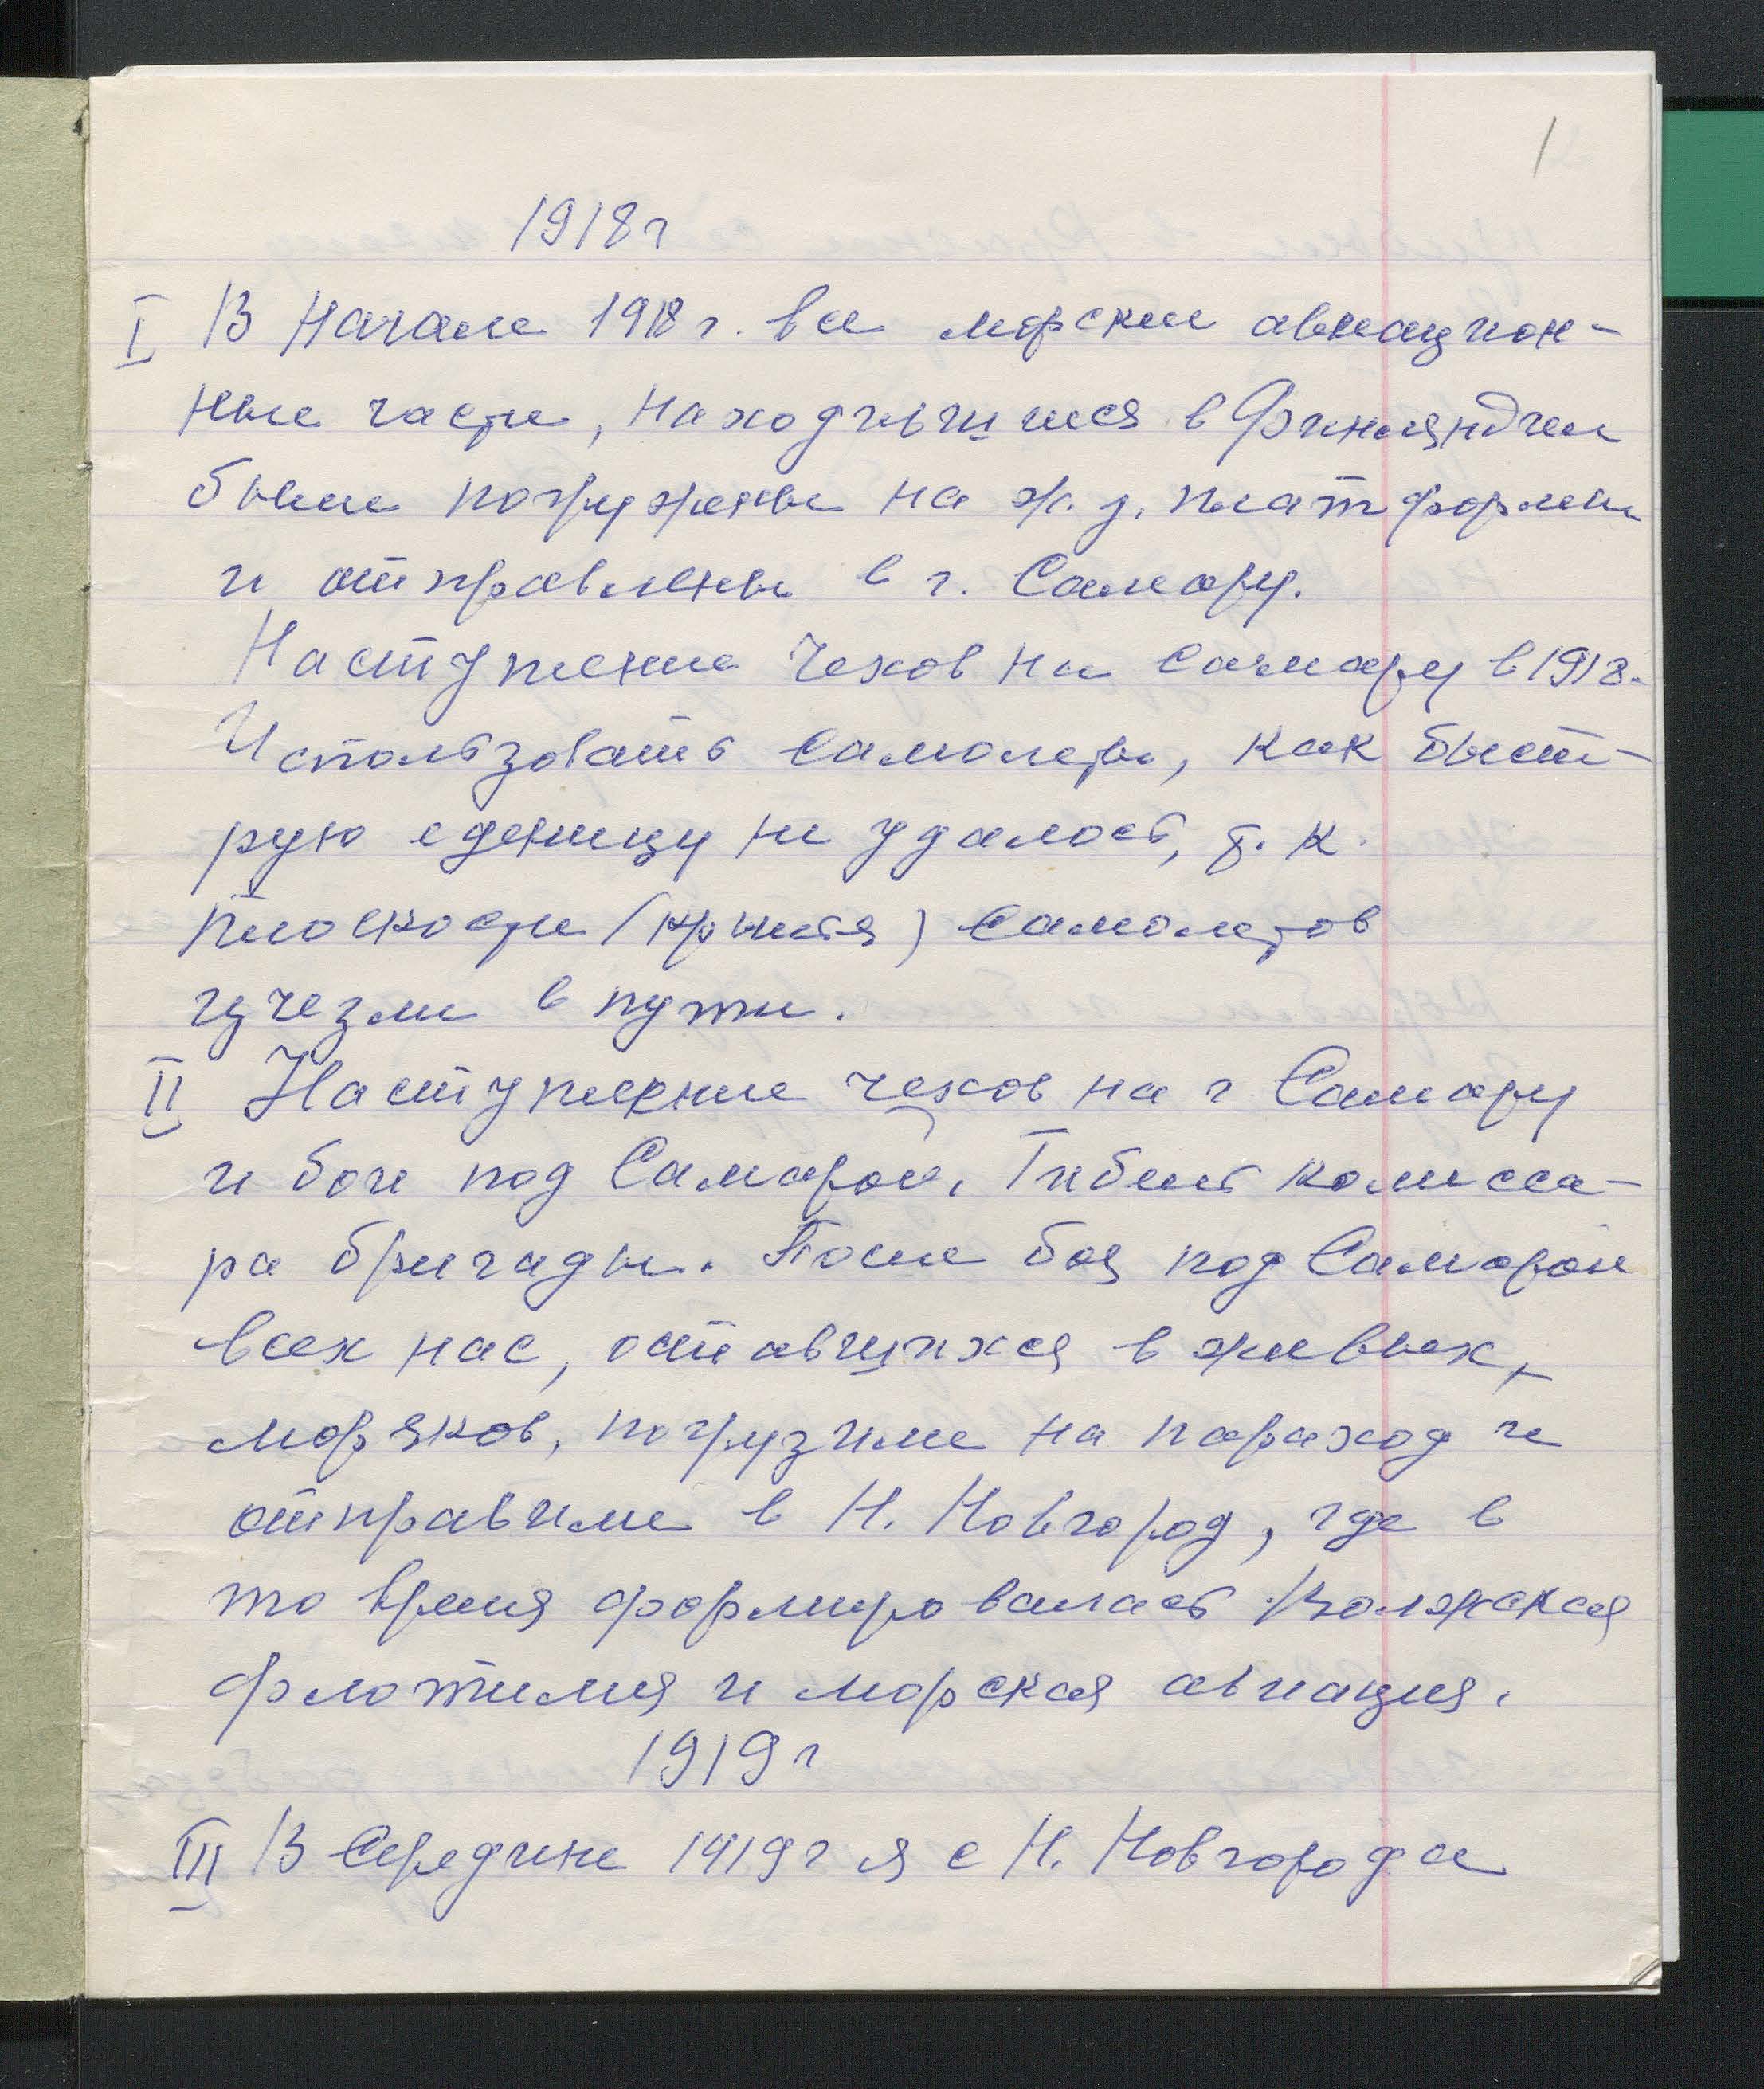 1
1918 г
I В Начале 1918 г. все морские авиацион-
ные части, находившиеся в Финляндии
были погружены на ж. д. платформы
и отправлены в г. Самару.
Наступление Чехов на Самару в 1918.
Использовать самолеты, как быст-
рую еденицу не удалось, т. к.
плоскости (крылья) самолетов
исчезли в пути.
II Наступление чехов на г Самару
и бои под Самарой. Гибель комисса-
ра бригады. После боя под Самарой
всех нас, оставшихся в живых,
моряков, погрузили на пароход и
отправили в Н. Новгород, где в
то время формировалась Волжская
флотилия и морская авиация.
1919 г
III В Середине 1919 г я с Н. Новгорода